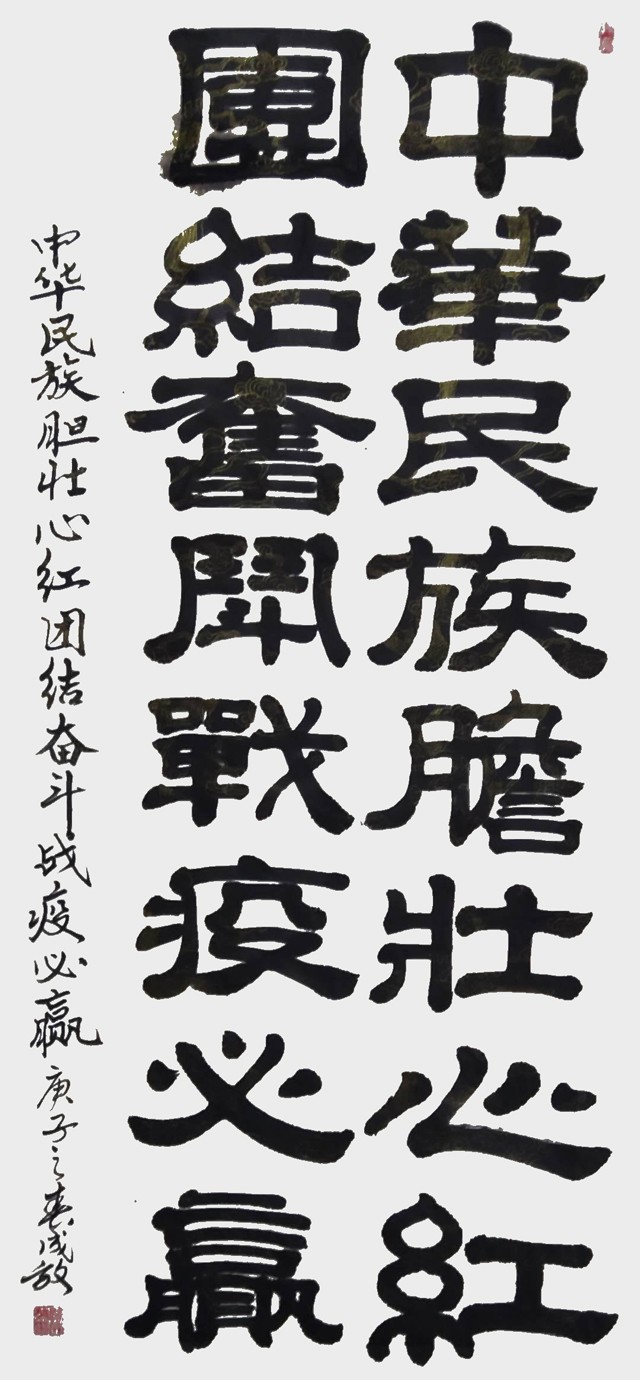 中華民族膽壯心紅
團結奮鬥戰疫必贏
中华民族胆壮心红团结奋斗战疫必赢庚子之春成敏